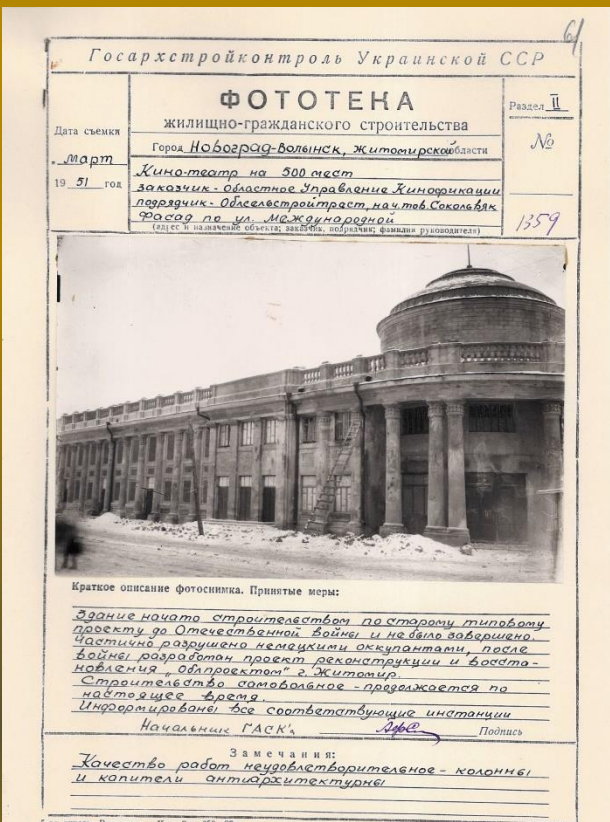 61
Госархстройконтроль Украинской ССР
ФОТОТЕКА
жилищно-гражданского строительства
Раздел II
Дата съемки
„Март
19 51 год
Город Новоград-Волынск, Житомирской области
№
1359
Кино-театр на 500 мест
заказчик - Областное Управление Кинофикации
подрядчик - Облсельстройтраст, нач. тов. Сокольвяк
Фасад по ул. Международной
(адрес и назначение объекта; заказчик, подрядчик; фамилия руководителя)
Краткое описание фотоснимка. Принятые меры:
Здание начато строительством по старому типовому
проекту до Отечественной войны и не было завершено.
Частично разрушено немецкими оккупантами, после
войны разработан проект реконструкции и восста-
новления „Облпроектом" г. Житомир.
Строительство самовольное - продолжается по
настоящее время.
Информированы все соответствующие инстанции
Начальник ГАСК'а
Подпись
Замечания:
Качество работ неудовлетворительное - колонны
и капители антиархитектурны